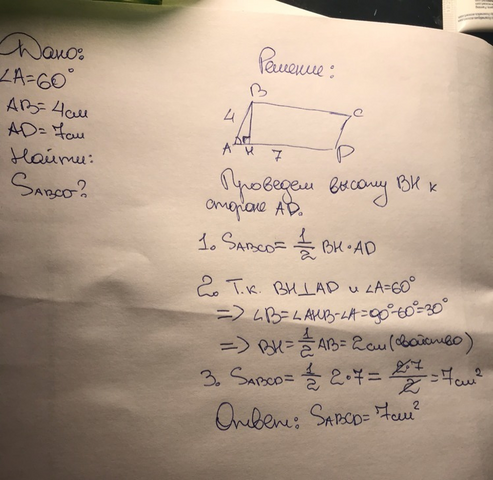 Дано:
∠A=60°
AB=4см
AD=7см
Найти:
SABCD-?
Решение:
B
4
C
A
H
7
D
Проведем высоту BH к
стороне AD.
1. SABCD=1/2 BH·AD
2. Т.к. BH⊥AD и ∠A=60°
=> ∠B=∠AHB-∠A=90°-60°=30°
=> BH=1/2 AB=2см(свойство)
3. SABCD=1/2 2·7=2·7/2=7см²
Ответ: SABCD=7см²